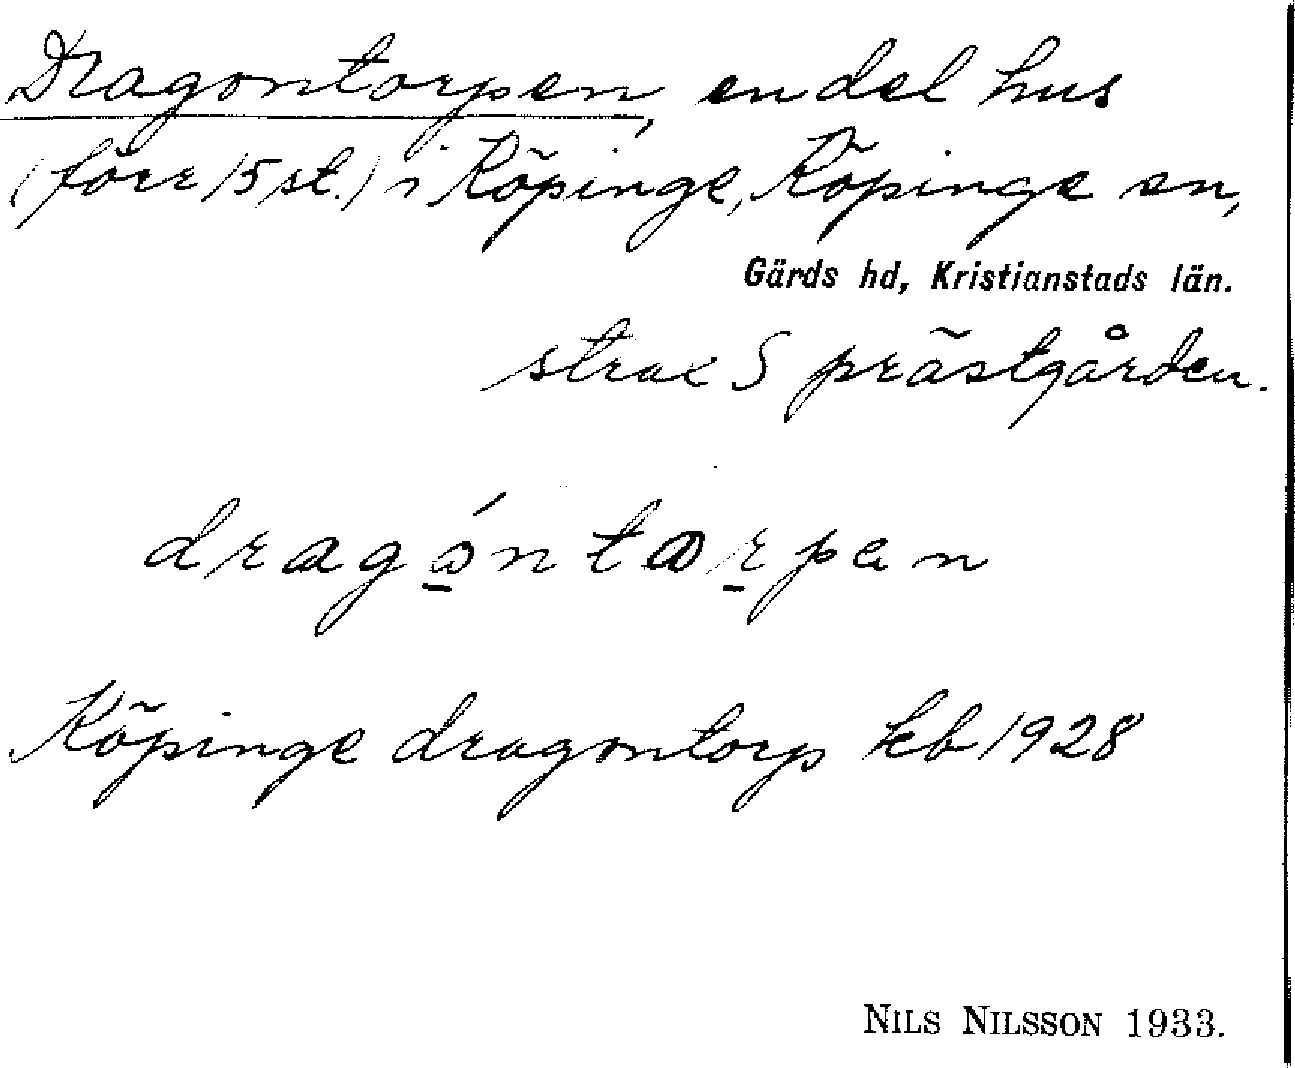 Dragontorpen, en del hus
(förr 15 st.) i Köpinge, Köpinge sn,
Gärds hd, Kristianstads län.
strax S prästgården.
dragón torpen
Köpinge dragontorp kb 1928
NILS NILSSON 1933.